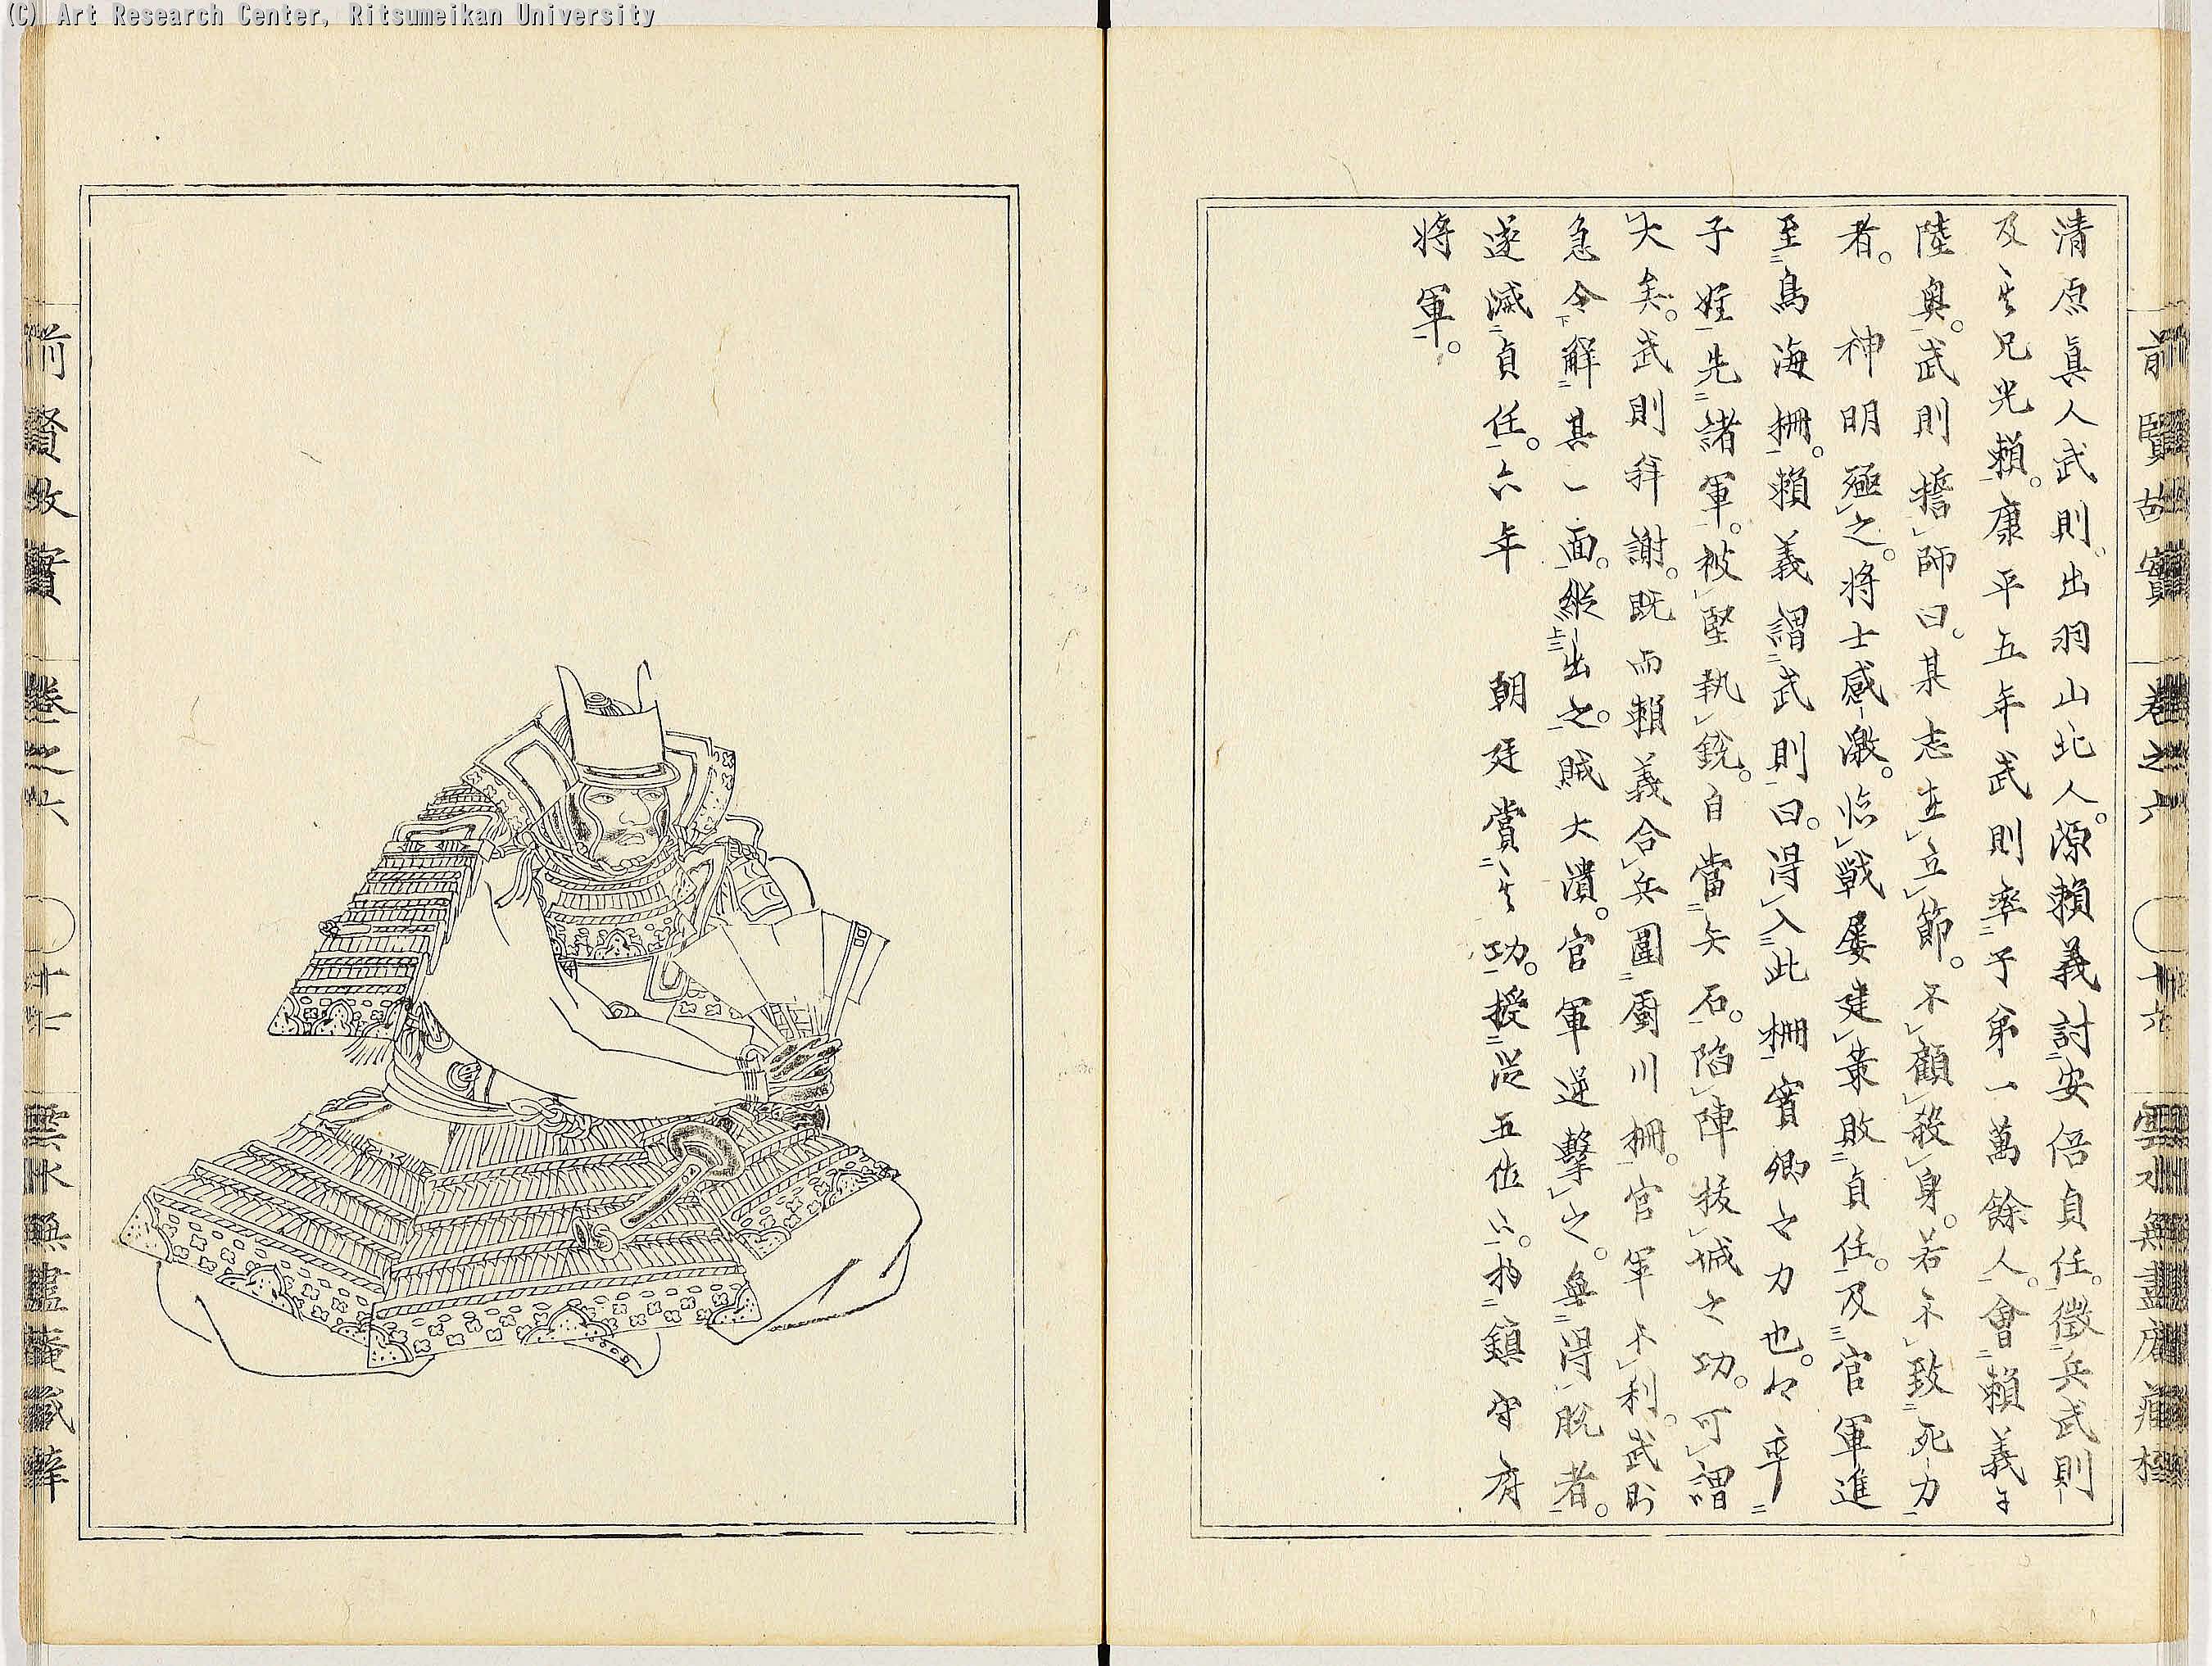 (C) Art Research Center, Ritsumeikan University
前賢故實 卷之六 十六 雲水無盡庵藏梓
清原眞人武則。出羽山北人。源賴義討安倍貞任。徵兵武則
及其兄光賴。康平五年武則率子弟一萬餘人。會賴義于
陸奥。武則誓師曰。某志在立節。不顧殺身。若不致死力
者。神明殛之。将士感激。臨戰屡建策敗貞任。及官軍進
至鳥海柵。賴義謂武則曰。得入此柵實卿之力也。々率
子姪先諸軍。被堅執銳。自當矢石。陷陣拔城之功。可謂
大矣。武則拜謝。既而賴義合兵圍廚川柵。官軍不利。武則
急令解其一面。縱出之。賊大潰。官軍逆擊之。無得脫者。
遂滅貞任。六年 朝廷賞其功。授從五位上。拘鎮守府
将軍。
前賢故實 卷之六 十七 雲水無盡庵藏梓